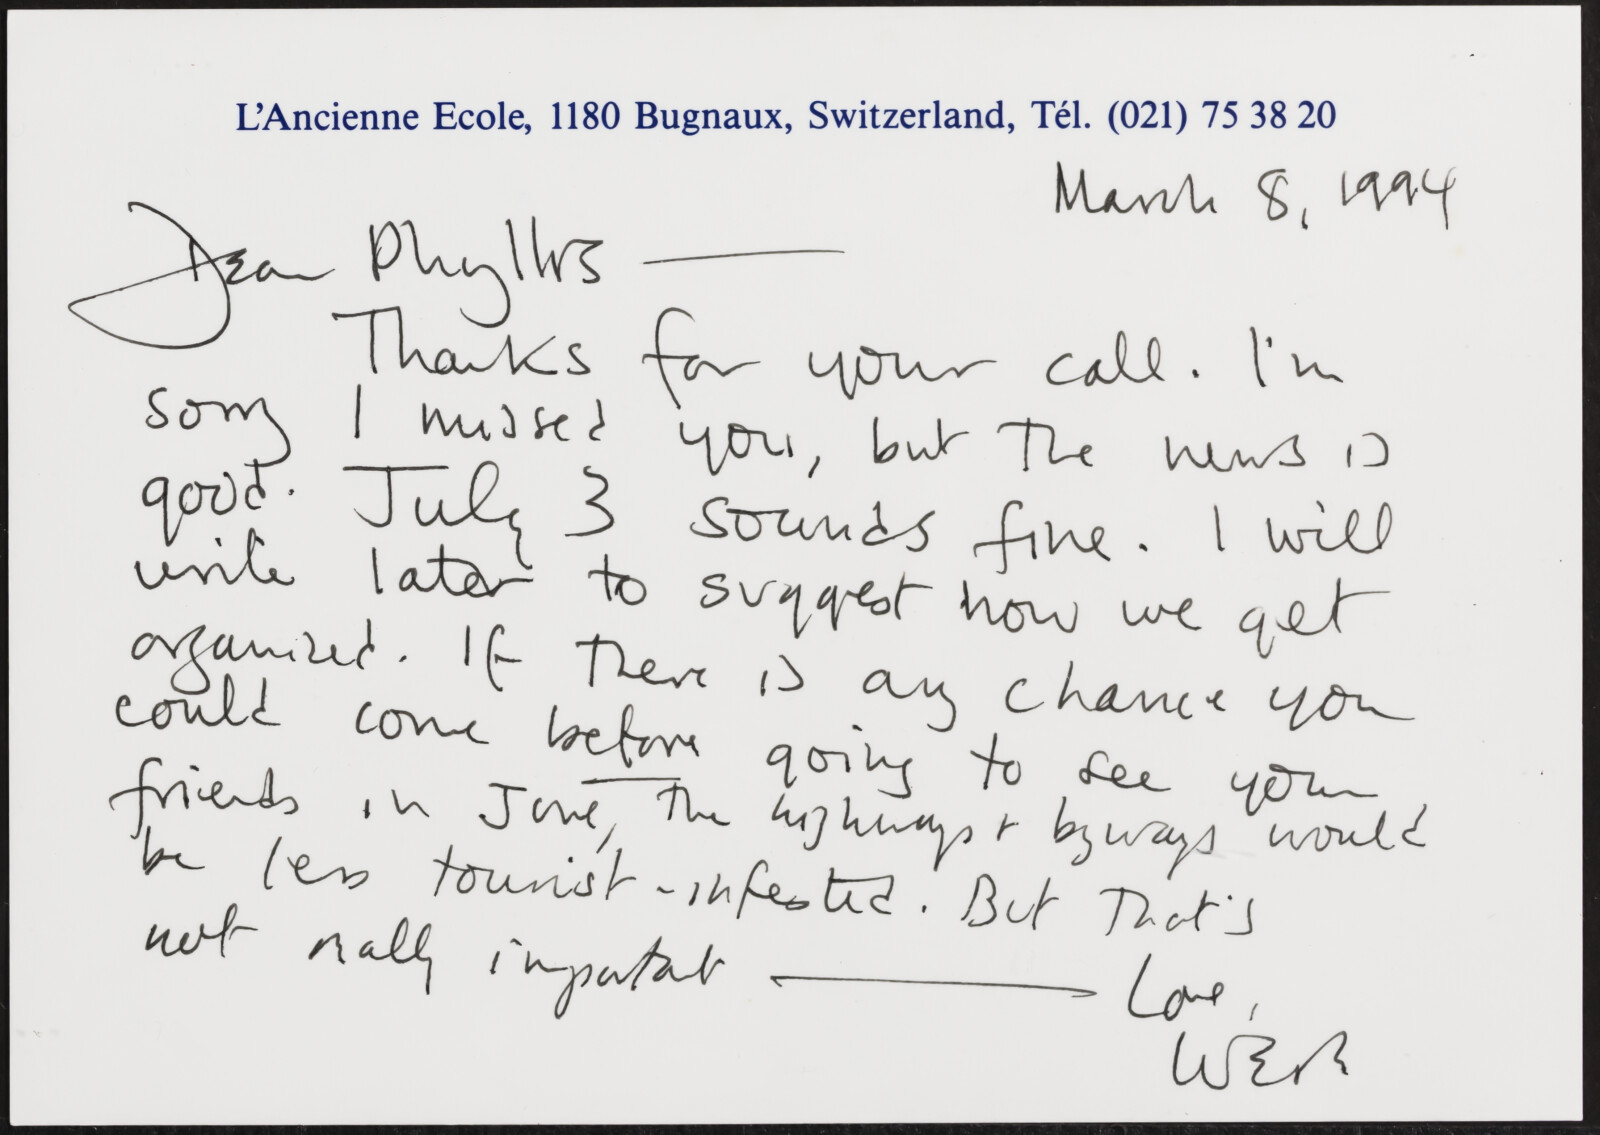 L'Ancienne Ecole, 1180 Bugnaux, Switzerland, Tél. (021) 75 38 20
March 8, 1994
Dear Phyllis —
Thanks for your call. I'm
sorry I missed you, but the news is
good. July 3 sounds fine. I will
write later to suggest how we get
organized. If there is any chance you
could come before going to see your
friends in June, the highways + byways would
be less tourist-infested. But that's
not really important — Love,